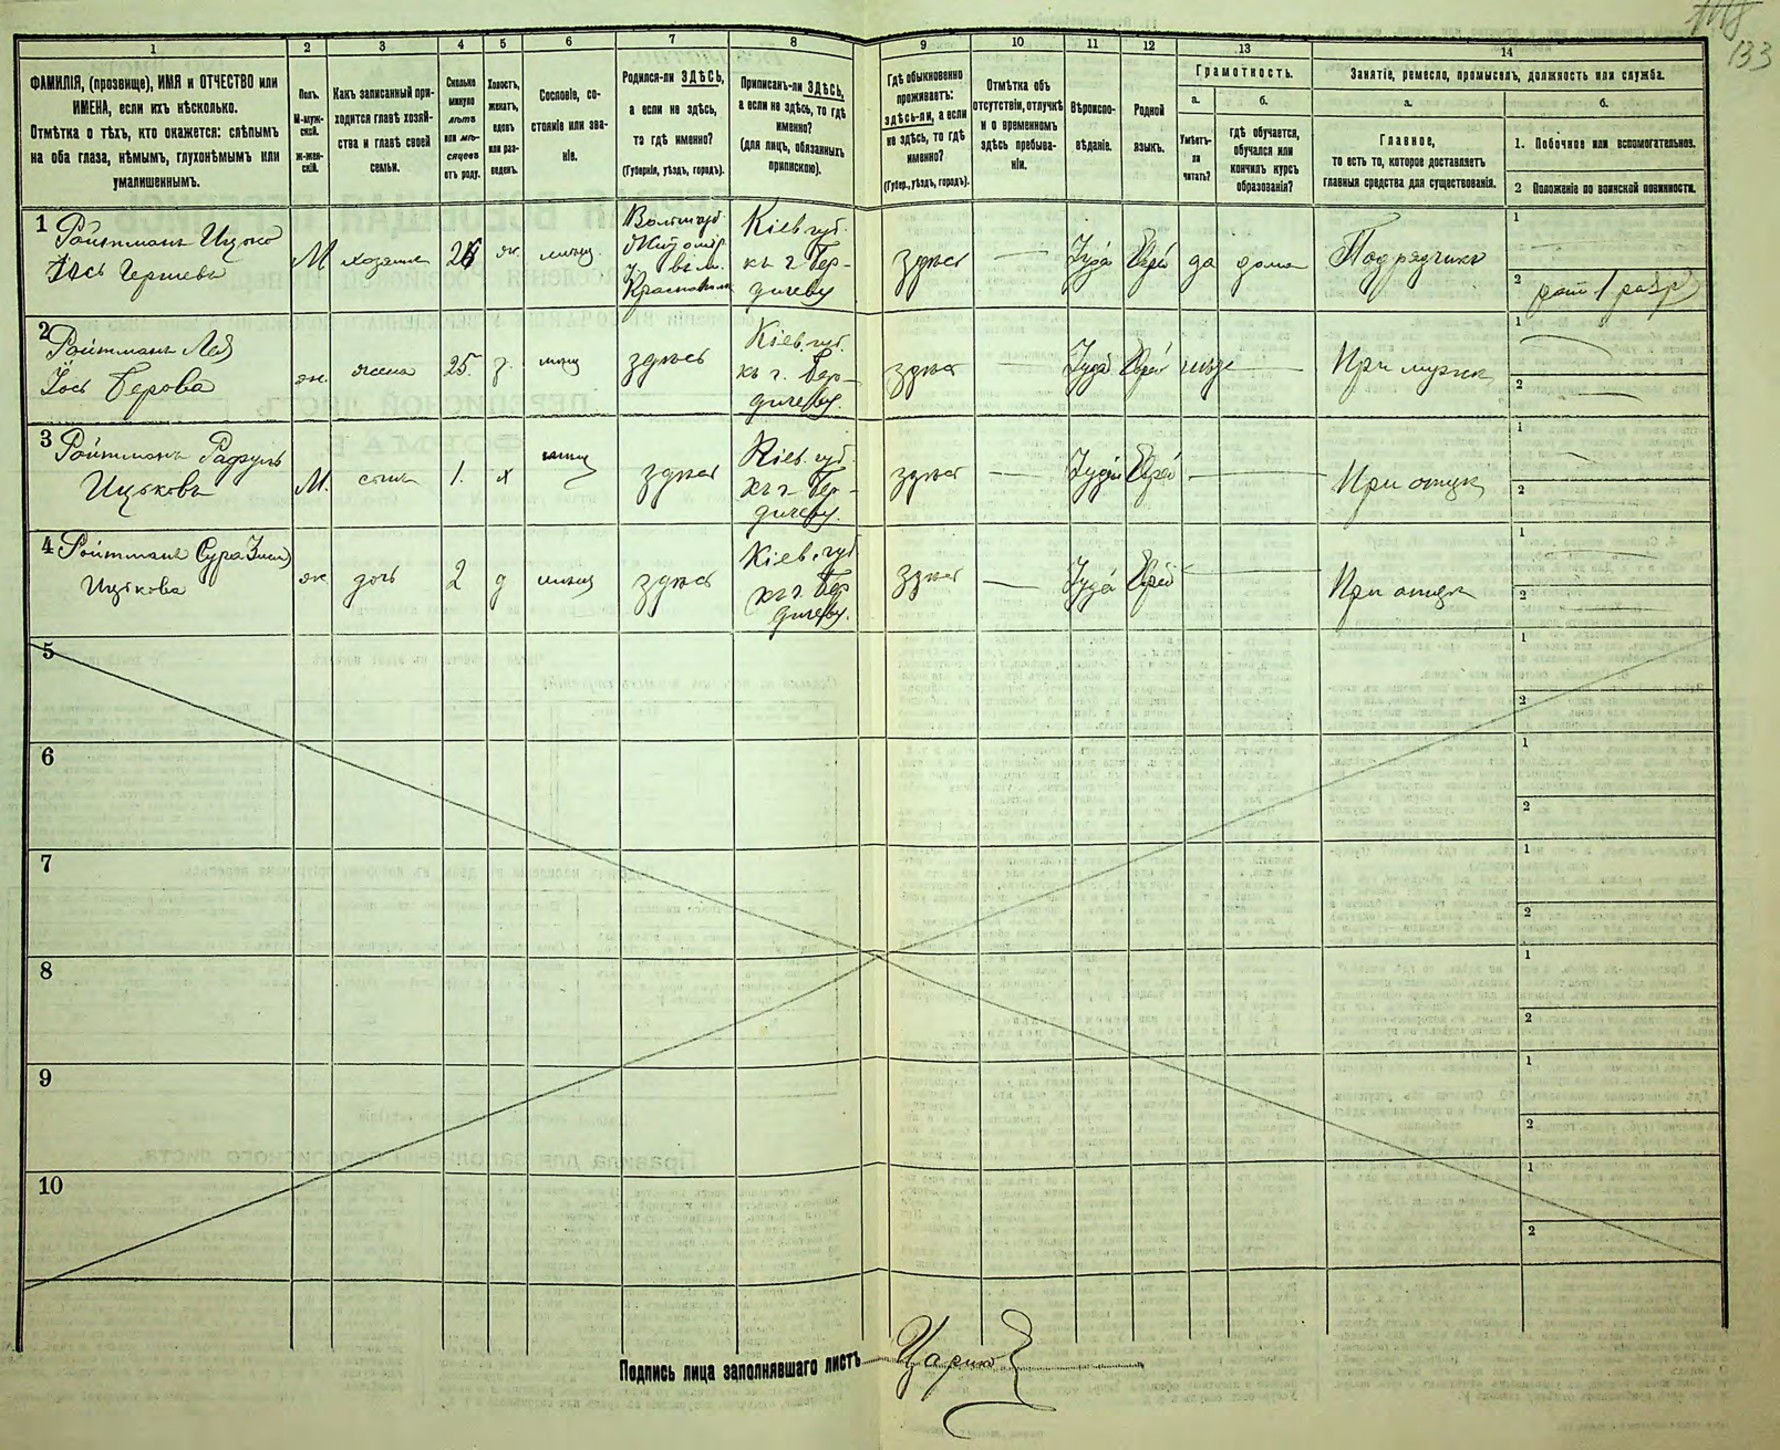 133
1 2 3 4 5 6 7 8 9 10 11 12 13 14
ФАМИЛІЯ, (прозвище), ИМЯ и ОТЧЕСТВО или
ИМЕНА, если ихъ нѣсколько.
Отмѣтка о тѣхъ, кто окажется: слѣпымъ
на оба глаза, нѣмымъ, глухонѣмымъ или
умалишеннымъ.
Полъ.
М-муж-
ской.
Ж-жен-
скій.
Какъ записанный при-
ходится главѣ хозяй-
ства и главѣ своей
семьи.
Сколько
минуло
лѣтъ
или мѣ-
сяцевъ
отъ роду.
Холостъ,
женатъ,
вдовъ
или раз-
веденъ.
Сословіе, со-
стояніе или зва-
ніе.
Родился-ли ЗДѢСЬ,
а если не здѣсь,
то гдѣ именно?
(Губернія, уѣздъ, городъ).
Приписанъ-ли ЗДѢСЬ,
а если не здѣсь, то гдѣ
именно?
(для лицъ, обязанныхъ
припискою).
Гдѣ обыкновенно
проживаетъ:
здѣсь-ли, а если
не здѣсь, то гдѣ
именно?
(Губер., уѣздъ, городъ).
Отмѣтка объ
отсутствіи, отлучкѣ
и о временномъ
здѣсь пребыва-
ніи.
Вѣроиспо-
вѣданіе.
Родной
языкъ.
Грамотность.
а.
Умѣетъ-
ли
читать?
б.
гдѣ обучается,
обучался или
кончилъ курсъ
образованія?
Занятіе, ремесло, промыселъ, должность или служба.
а.
Главное,
то есть то, которое доставляетъ
главныя средства для существованія.
б.
1. Побочное или вспомогательное.
2 Положеніе по воинской повинности.
1 Ройтманъ Ицко
Іось Гершевъ
М
хозяинъ
ж.
мѣщ.
Волын губ.
Житомір
у. в м.
Кіев губ.
къ г. Бер-
дичеву
здѣсь
Іудей
Еврей
да
дома
Подрядчикъ
1
2 1 разр
2 Ройтманъ Лея
Іось Берова
ж.
жена
25.
з.
мѣщ
здѣсь
Кіев. губ.
къ г. Бер-
дичеву.
здѣсь
Іудей
Еврей
При мужѣ
1
2
3 Ройтманъ
Ицьковъ
М.
сынъ
1.
х
мѣщ
здѣсь
Кіев. губ.
къ г. Бер-
дичеву.
здѣсь
Іудей
Еврей
При отцѣ
1
2
4 Ройтманъ Сура
Ицькова
ж
дочь
2
д
мѣщ
здѣсь
Кіев. губ
къ г. Бер
дичеву.
здѣсь
Іудей
Еврей
При отцѣ
1
2
5
1
2
6
1
2
7
1
2
8
1
2
9
1
2
10
1
2
Подпись лица заполнявшаго листъ